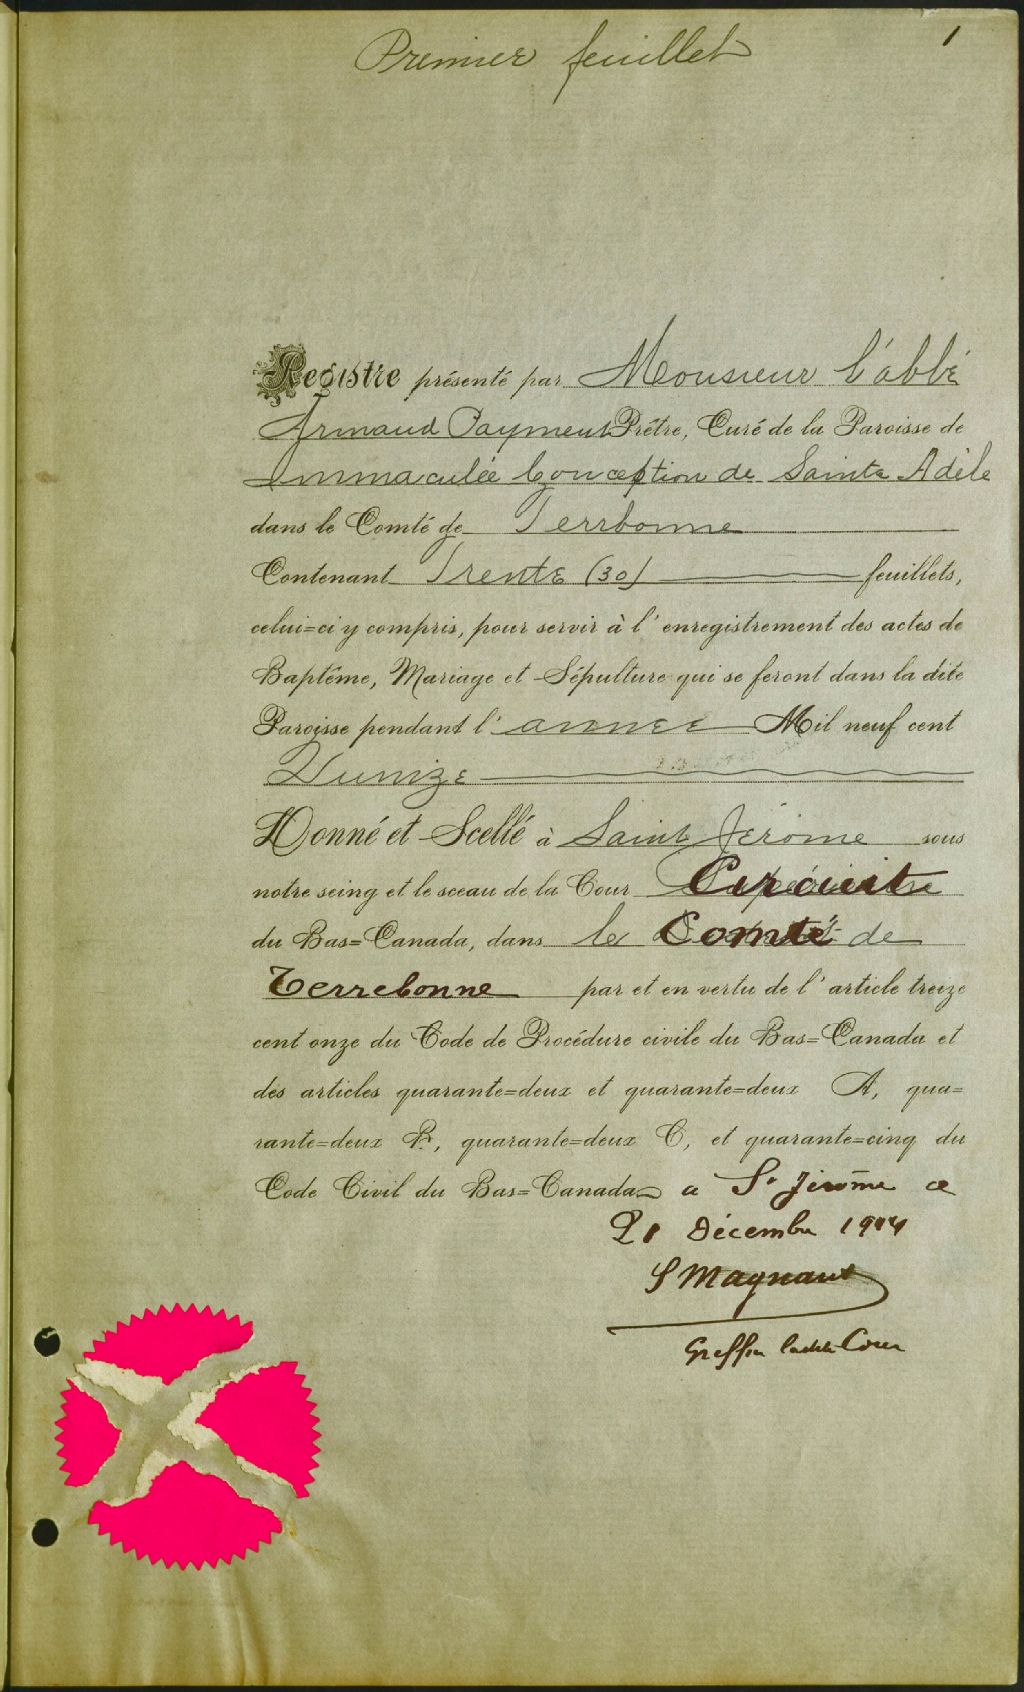 Premier feuillet
1
Registre présenté par Monsieur l'abbé
Armand Payment Prêtre, Curé de la Paroisse de
Immaculée Conception de Sainte Adèle
dans le Comté de Terrbonne
Contenant Trente (30) feuillets,
celui=ci y compris, pour servir à l'enregistrement des actes de
Baptême, Mariage et Sépulture qui se feront dans la dite
Paroisse pendant l'année Mil neuf cent
Quinze
Donné et Scellé à Saint Jérôme sous
notre seing et le sceau de la Cour Circuit
du Bas=Canada, dans le Comté de
Terrebonne par et en vertu de l'article treize
cent onze du Code de Procédure civile du Bas=Canada et
des articles quarante=deux et quarante=deux A, qua=
rante=deux B, quarante=deux C, et quarante=cinq du
Code Civil du Bas=Canada a St Jérôme ce
21 Décembre 1914
S Magnant
Greffier ladite Cour